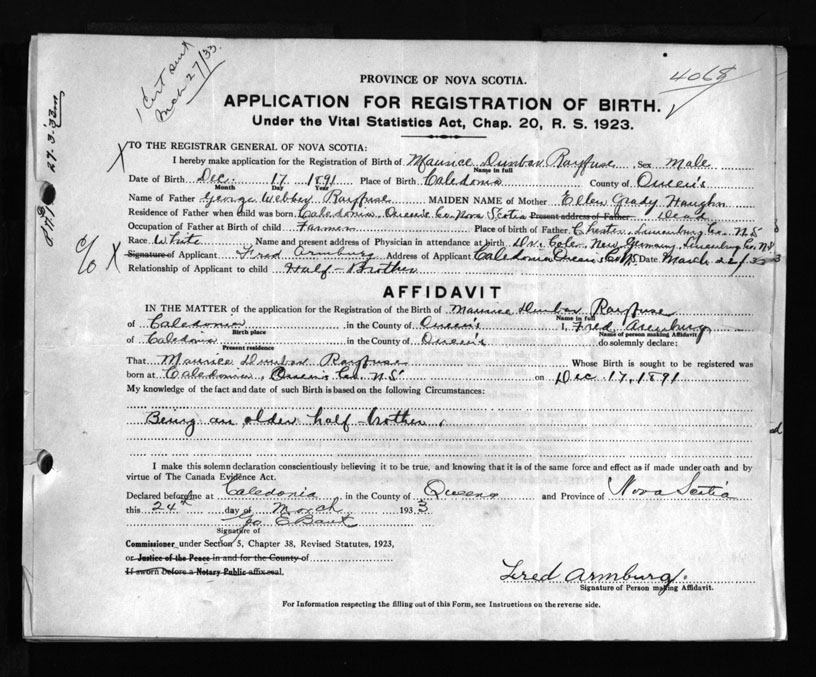 1 Cert sent
Mch 27/33.
27.3.33
4068
PROVINCE OF NOVA SCOTIA.
APPLICATION FOR REGISTRATION OF BIRTH.
Under the Vital Statistics Act, Chap. 20, R. S. 1923.
X TO THE REGISTRAR GENERAL OF NOVA SCOTIA:
I hereby make application for the Registration of Birth of Maurice Dunbar Rayfuse Sex Male
Name in full
Date of Birth Dec. 17 1891 Place of Birth Caledonia County of Queen's
Month Day Year
Name of Father George Rayfuse MAIDEN NAME of Mother Ellen Grady Vaughn
Residence of Father when child was born Caledonia Queens Co. Nova Scotia Present address of Father Dead
Occupation of Father at Birth of child Farmer Place of birth of Father Chester, Lunenburg Co. N.S
Race White Name and present address of Physician in attendance at birth Dr. Cole, New Germany, Lunenburg Co. N.S
c/o X Signature of Applicant Fred Armburg Address of Applicant Caledonia Queens Co N.S. Date March
Relationship of Applicant to child Half-Brother
AFFIDAVIT
IN THE MATTER of the application for the Registration of the Birth of Maurice Dunbar Rayfuse
Name in full
of Caledonia in the County of Queen's I, Fred Armburg
Birth place Name of person making Affidavit
of Caledonia in the County of Queen's do solemnly declare:
Present residence
That Maurice Dunbar Rayfuse Whose Birth is sought to be registered was
born at Caledonia, Queen's Co. N.S. on Dec. 17, 1891
My knowledge of the fact and date of such Birth is based on the following Circumstances:
Being an older half-brother.
I make this solemn declaration conscientiously believing it to be true, and knowing that it is of the same force and effect as if made under oath and by
virtue of The Canada Evidence Act.
Declared before me at Caledonia in the County of Queens and Province of Nova Scotia
this 24th day of March 1933
Geo. E Bant
Signature of
Commissioner under Section 5, Chapter 38, Revised Statutes, 1923,
or Justice of the Peace in and for the County of
If sworn before a Notary Public affix seal.
Fred Armburg.
Signature of Person making Affidavit.
For Information respecting the filling out of this Form, see Instructions on the reverse side.